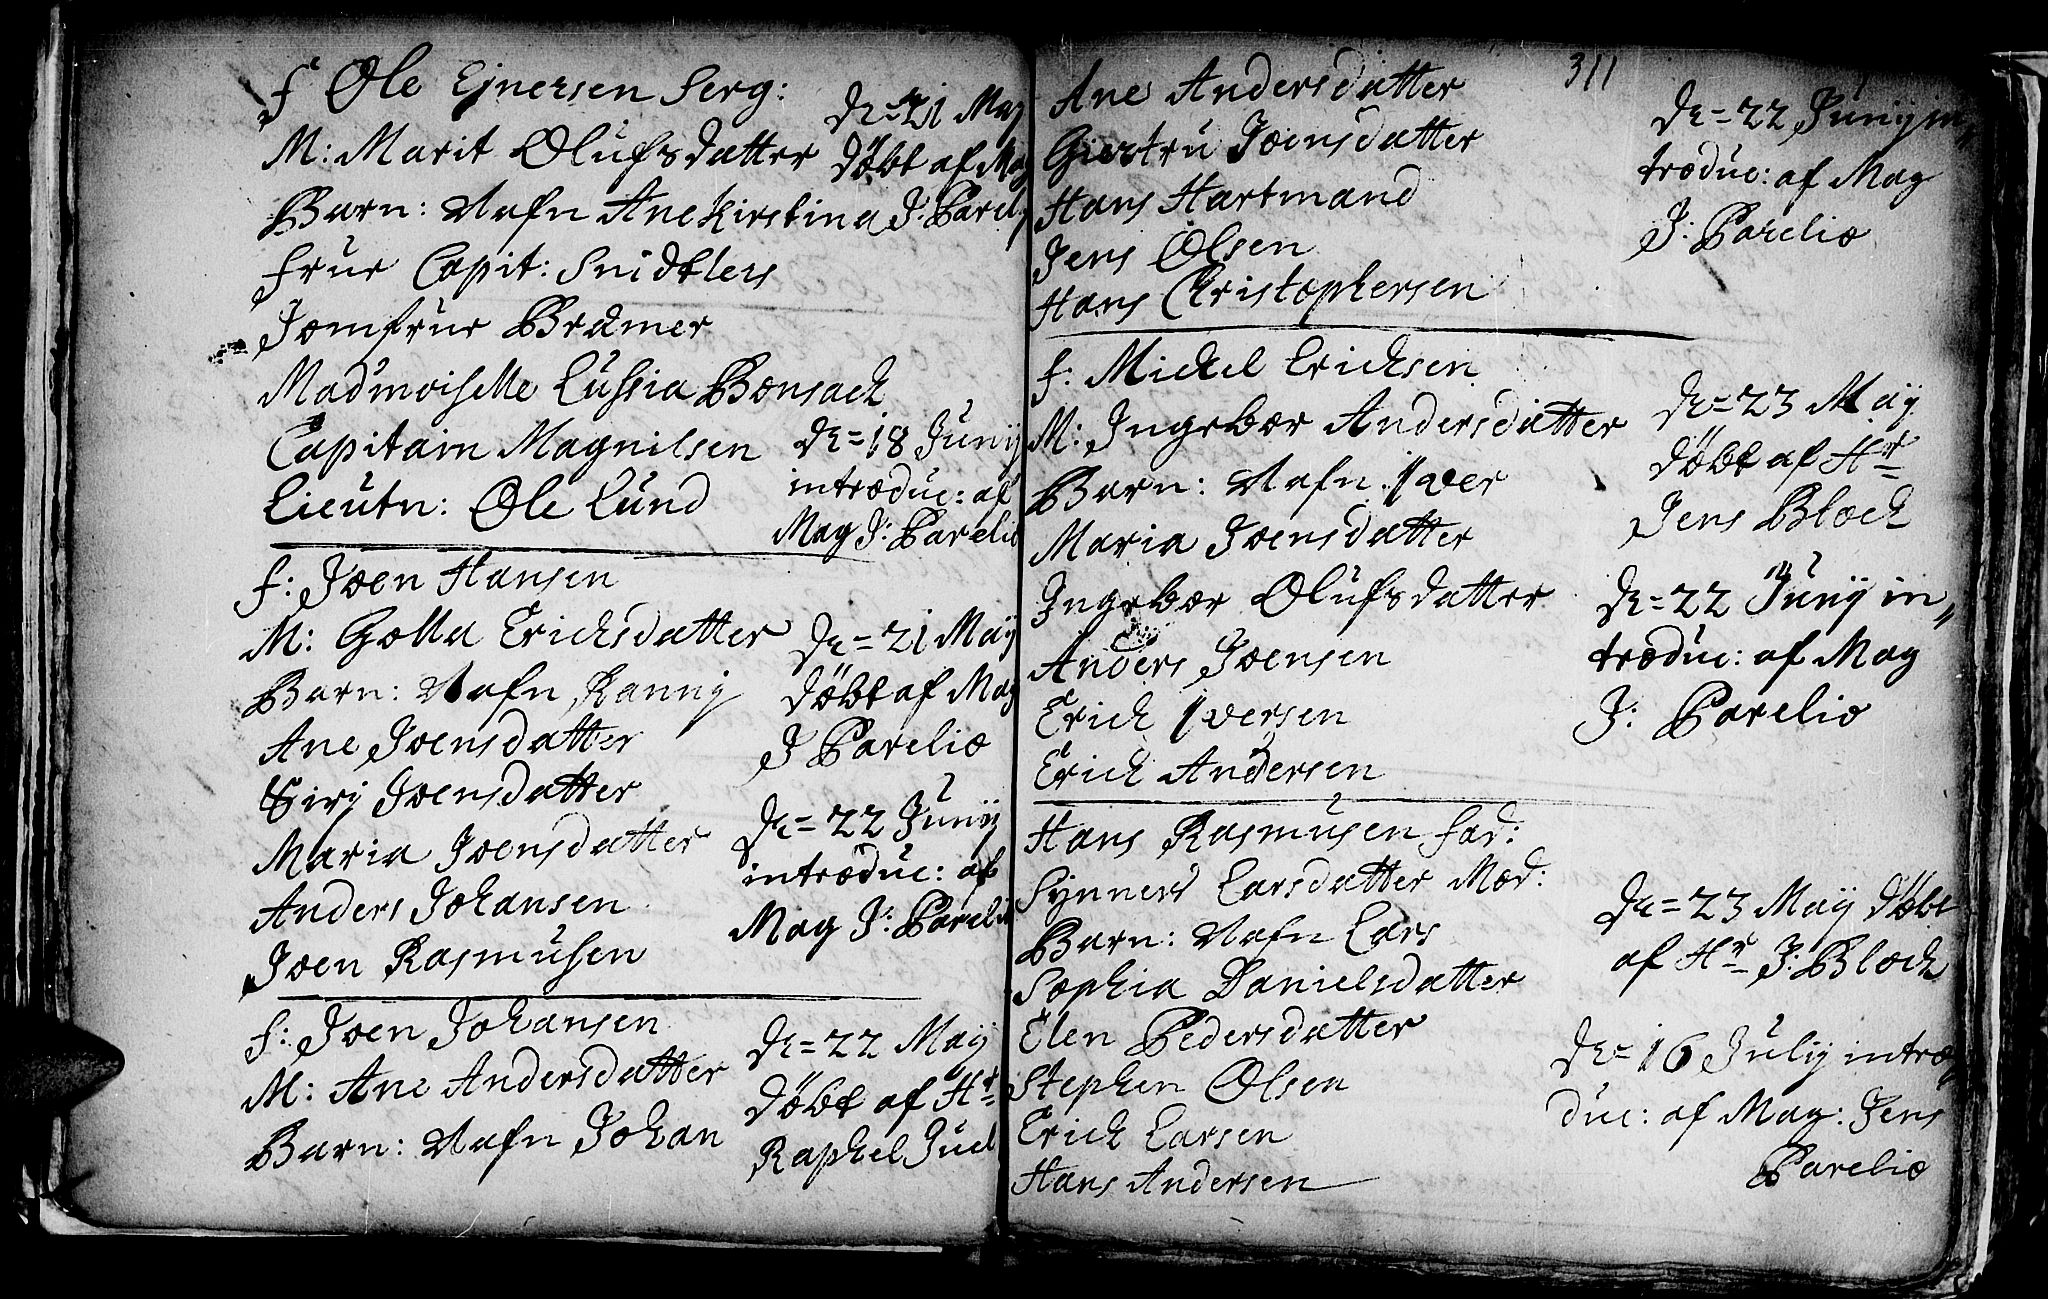 f Ole Ejnersen Serg:
M: Marit Olufsdatter
Barn: Nafn Ane Kirstina
frue Capit: Snidtlers
Jomfrue Bramer
Madmoiselle Lussia Bonsach
Capitain Magnilsen
Lieutn: Ole Lund
de=21 May
döbt af Mag
J: Pareli
de=18 Junij
introduc: af
Mag J: Parelio
f: Joen Hansen
M: Golla Erichsdatter
Barn: Nafn Rannij
Ane Joensdatter
Sirij Joensdatter
Maria Joensdatter
Anders Johansen
Joen Rasmusen
de=21 Maij
döbt af Mag
J Parelio
de=22 Junij
introduc: af
Mag J: Parelio
f: Joen Johansen
M: Ane Andersdatter
Barn: Nafn Johan
de=22 Maij
döbt af Hr
Raphel Juel
311
Ane Andersdatter
Giertru Joensdatter
Hans Hartmand
Jens Olsen
Hans Christophersen
de=22 Junij in„
troduc: af Mag
J: Parelio
f: Mickel Ericksen
M: Ingebor Andersdatter
Barn: Nafn Iver
Maria Joensdatter
Ingebor Olufsdatter
Anders Joensen
Erich Iversen
Erich Andersen
de=23 Maij
döbt af Hr
Jens Bloch
de=22 Junij in„
troduc: af Mag
J: Parelio
Hans Rasmusen fad:
Synnevd Larsdatter Mod:
Barn: Nafn Lars
Sophia Danielsdatter
Elen Pedersdatter
Stephen Olsen
Erich Larsen
Hans Andersen
de=23 Maij döbt
af Hr J: Bloch
de=16 Julij intro„
duc: af Mag: Jens
Parelio